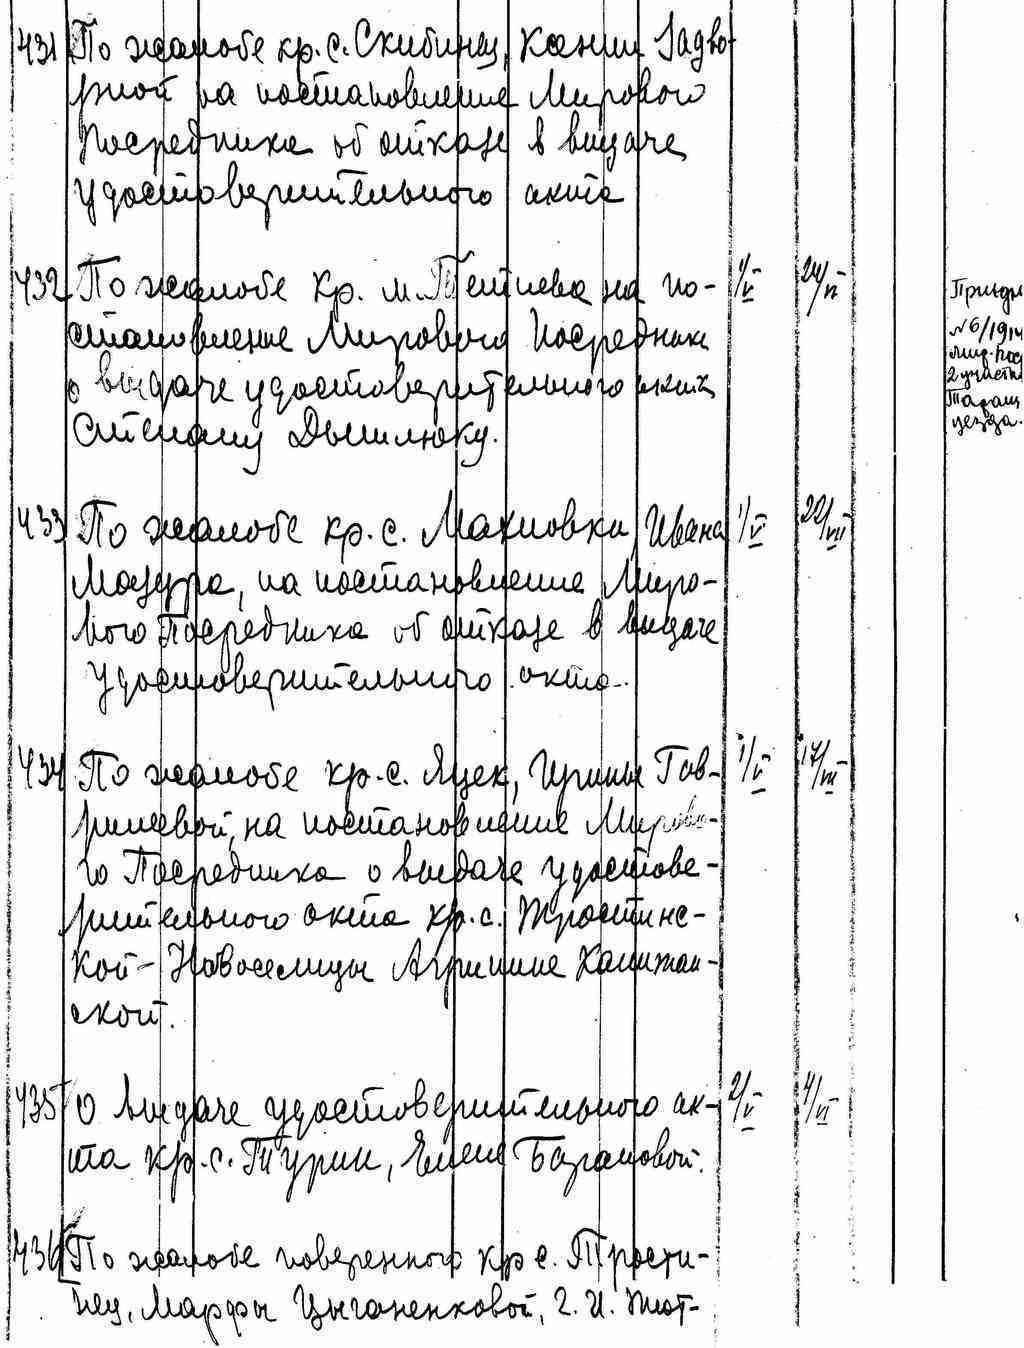 431 По жалобе кр. с. Скибинец, Ксении Задво-
рной на постановление Мирового
Посредника об отказе в выдаче
удостоверительного акта
432 По жалобе кр. м. Тетиева на по- 1/V 24/VI
становление Мирового Посредника
о выдаче удостоверительного акта
Степану Данилюку.
№ 6/1914
Мир. Пос
2 участк
Таращ
уезда.
433 По жалобе кр. с. Махновки, Ивана 1/V 22/VII
Мазура, на постановление Миро-
вого Посредника об отказе в выдаче
удостоверительного акта.
434 По жалобе кр. с. Яцек, Ирины Гав-
ришевой, на постановление Мирово-
го Посредника о выдаче удостове-
рительного акта кр. с. Тростинс-
кой-Новоселицы Агрипине
ской.
435 О выдаче удостоверительного ак- 2/V 4/VI
та кр. с. Турии, Елене Барановой.
436 По жалобе поверенного кр. с. Трости-
нец, Марфы Цыганенковой, Г. И. Жит-